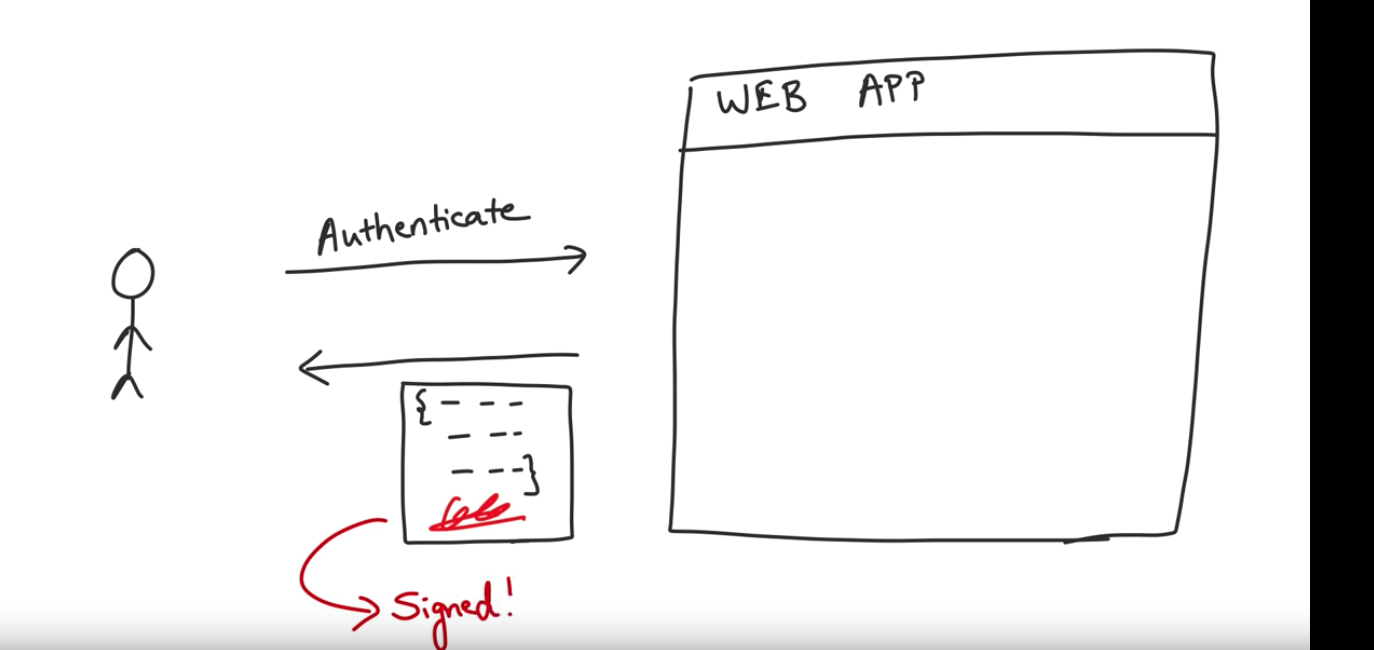 WEB APP
Authenticate
{ - - -
- - -
- - - }
Signed!